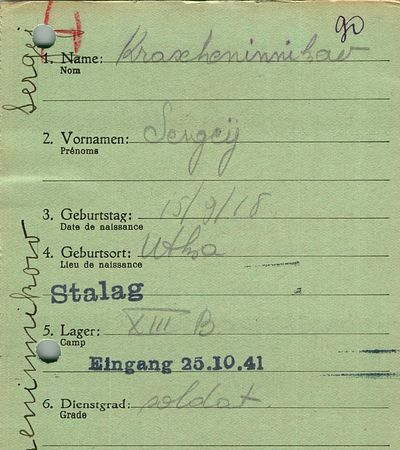 90
1. Name: Krascheninnikow
Nom
2. Vornamen: Sergeij
Prénoms
3. Geburtstag: 15/9/18
Date de naissance
4. Geburtsort: Utka
Lieu de naissance
Stalag
5. Lager: XIII B
Camp
Eingang 25.10.41
6. Dienstgrad: soldat
Grade
Sergei
eninnikow